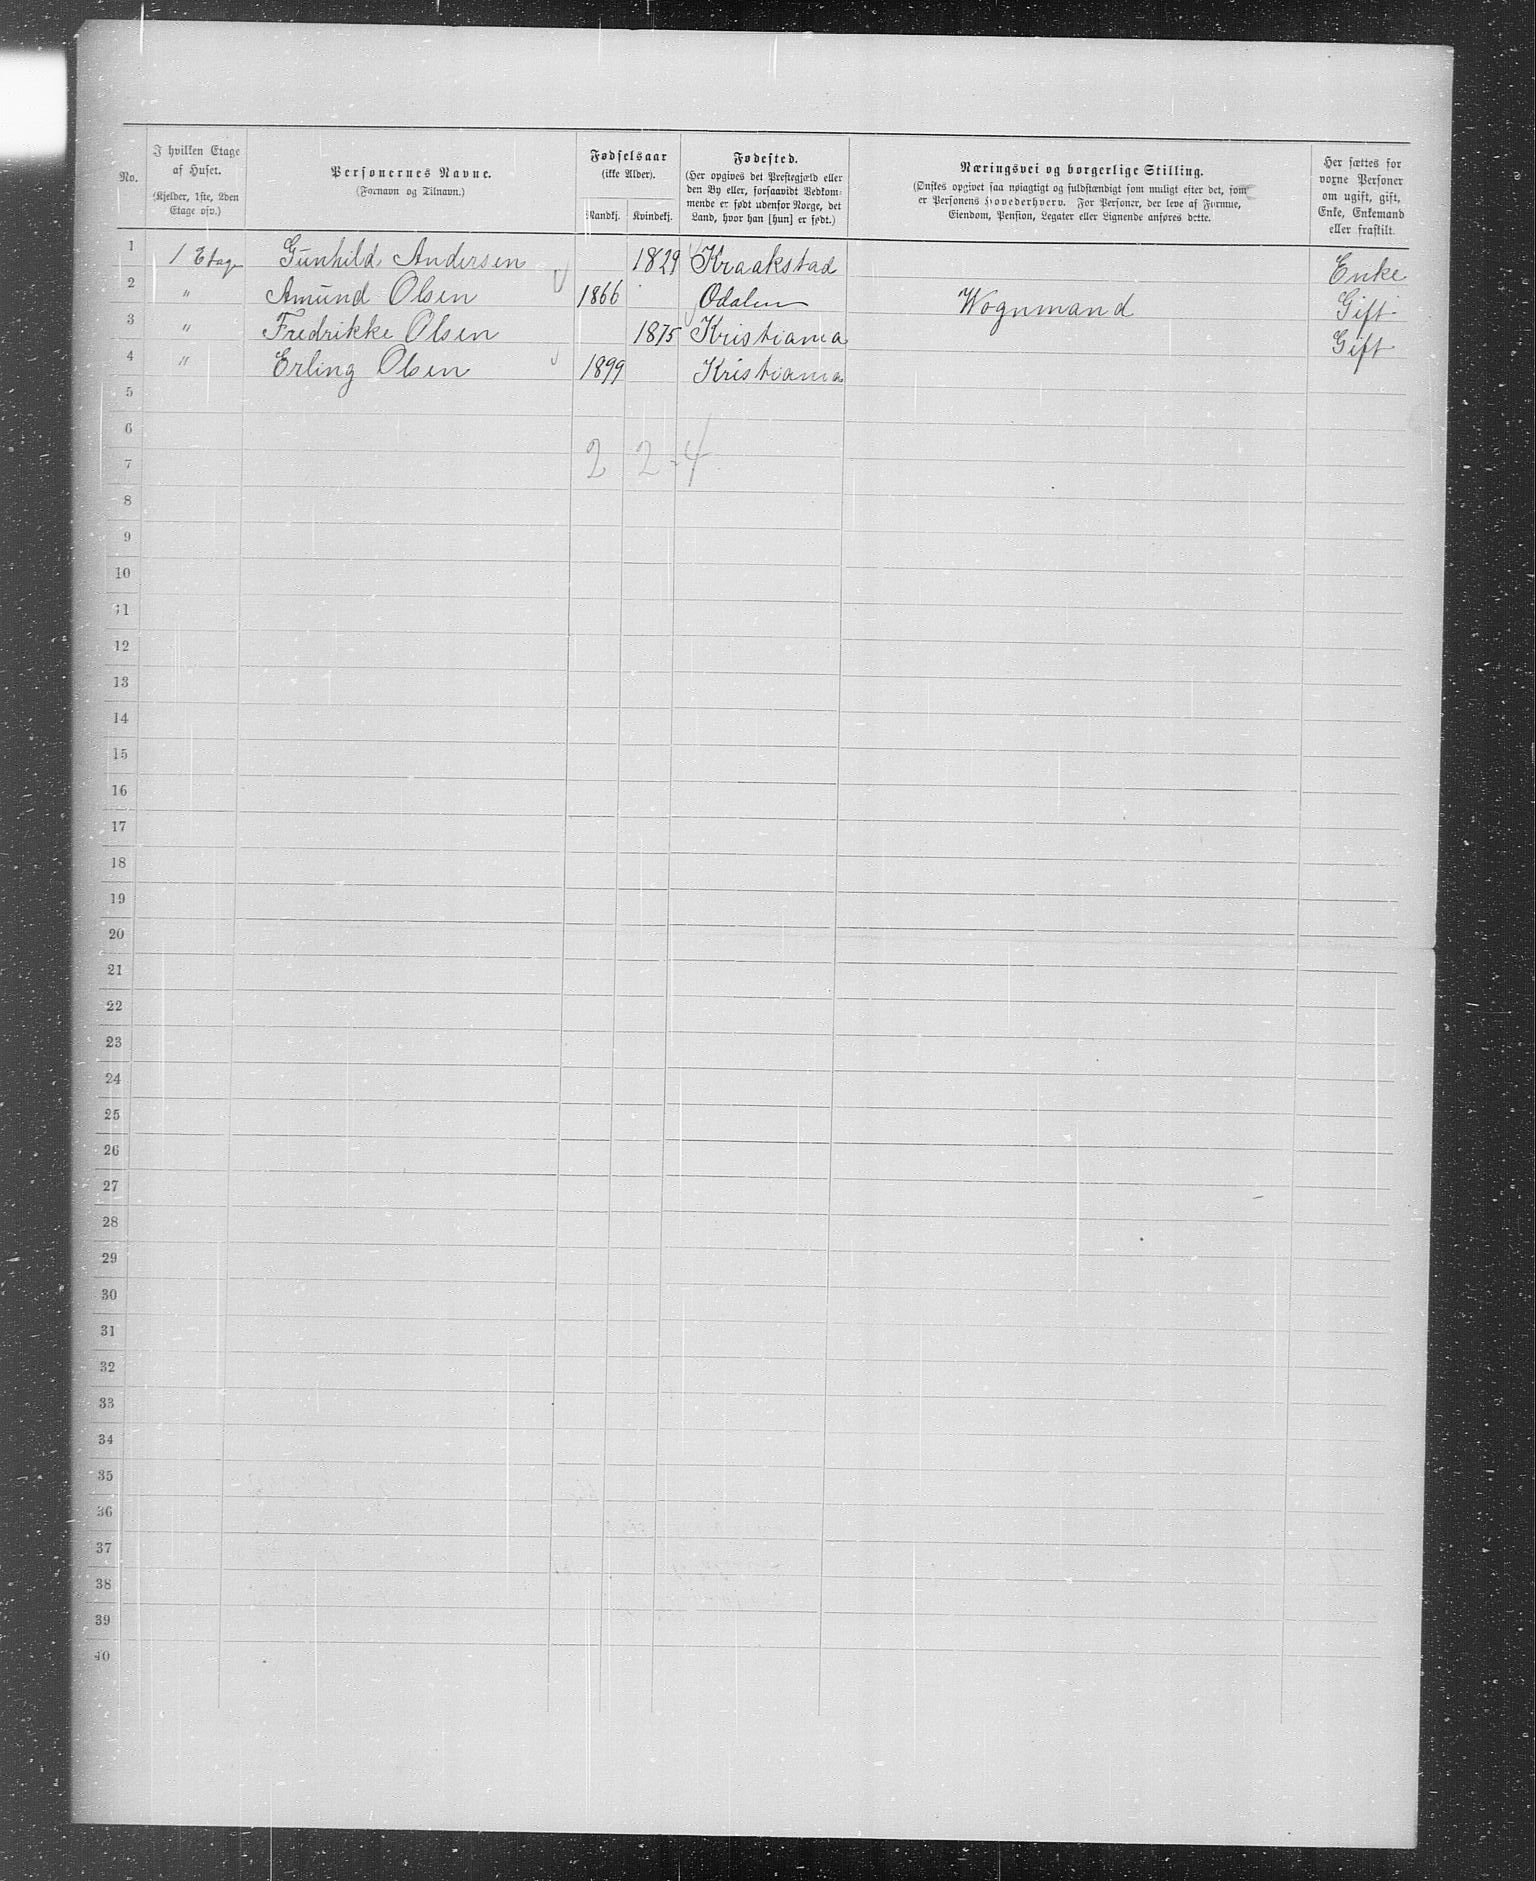 No.
I hvilken Etage af Huset.
(Kjelder, 1ste, 2den Etage osv.)
Personernes Navne.
(Fornavn og Tilnavn.)
Fødselsaar
(ikke Alder).
Mandkj. Kvindekj.
Fødested.
(Her opgives det Prestegjæld eller
den By eller, forsaavidt Vedkom-
mende er født udenfor Norge, det
Land, hvor han [hun] er født.)
Næringsvei og borgerlige Stilling.
(Ønskes opgivet saa nøiagtigt og fuldstændigt som muligt efter det, som
er Personens Hovederhverv. For Personer, der leve af Formue,
Eiendom, Pension, Legater eller Lignende anføres dette.
Her sættes for
voxne Personer
om ugift, gift,
Enke, Enkemand
eller fraskilt.
1 1 Etage Gunhild Andersen 1829 Kraakstad Enke
2 " Amund Olsen 1866 Odalen Wognmand Gift
3 " Fredrikke Olsen 1875 Kristiania Gift
4 " Erling Olsen 1899 Kristiania
5
6
7 2 2 - 4
8
9
10
11
12
13
14
15
16
17
18
19
20
21
22
23
24
25
26
27
28
29
30
31
32
33
34
35
36
37
38
39
40